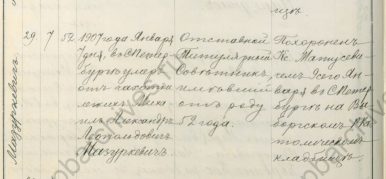 29 7 52
1907 года Января
7 дня, въ С. Петер-
бургѣ умеръ
отъ
Александръ
Леопольдовичъ
Мазуркевичъ
Отставной
Титулярный
Совѣтникъ,
имѣвшій
отъ роду
52 года.
Похороненъ
Кс. Матусеви-
чемъ 9 сего Ян-
варя въ С. Петер
бургѣ на Вы-
боргскомъ Ка-
толическомъ
кладбищѣ.
Мазуркевичъ